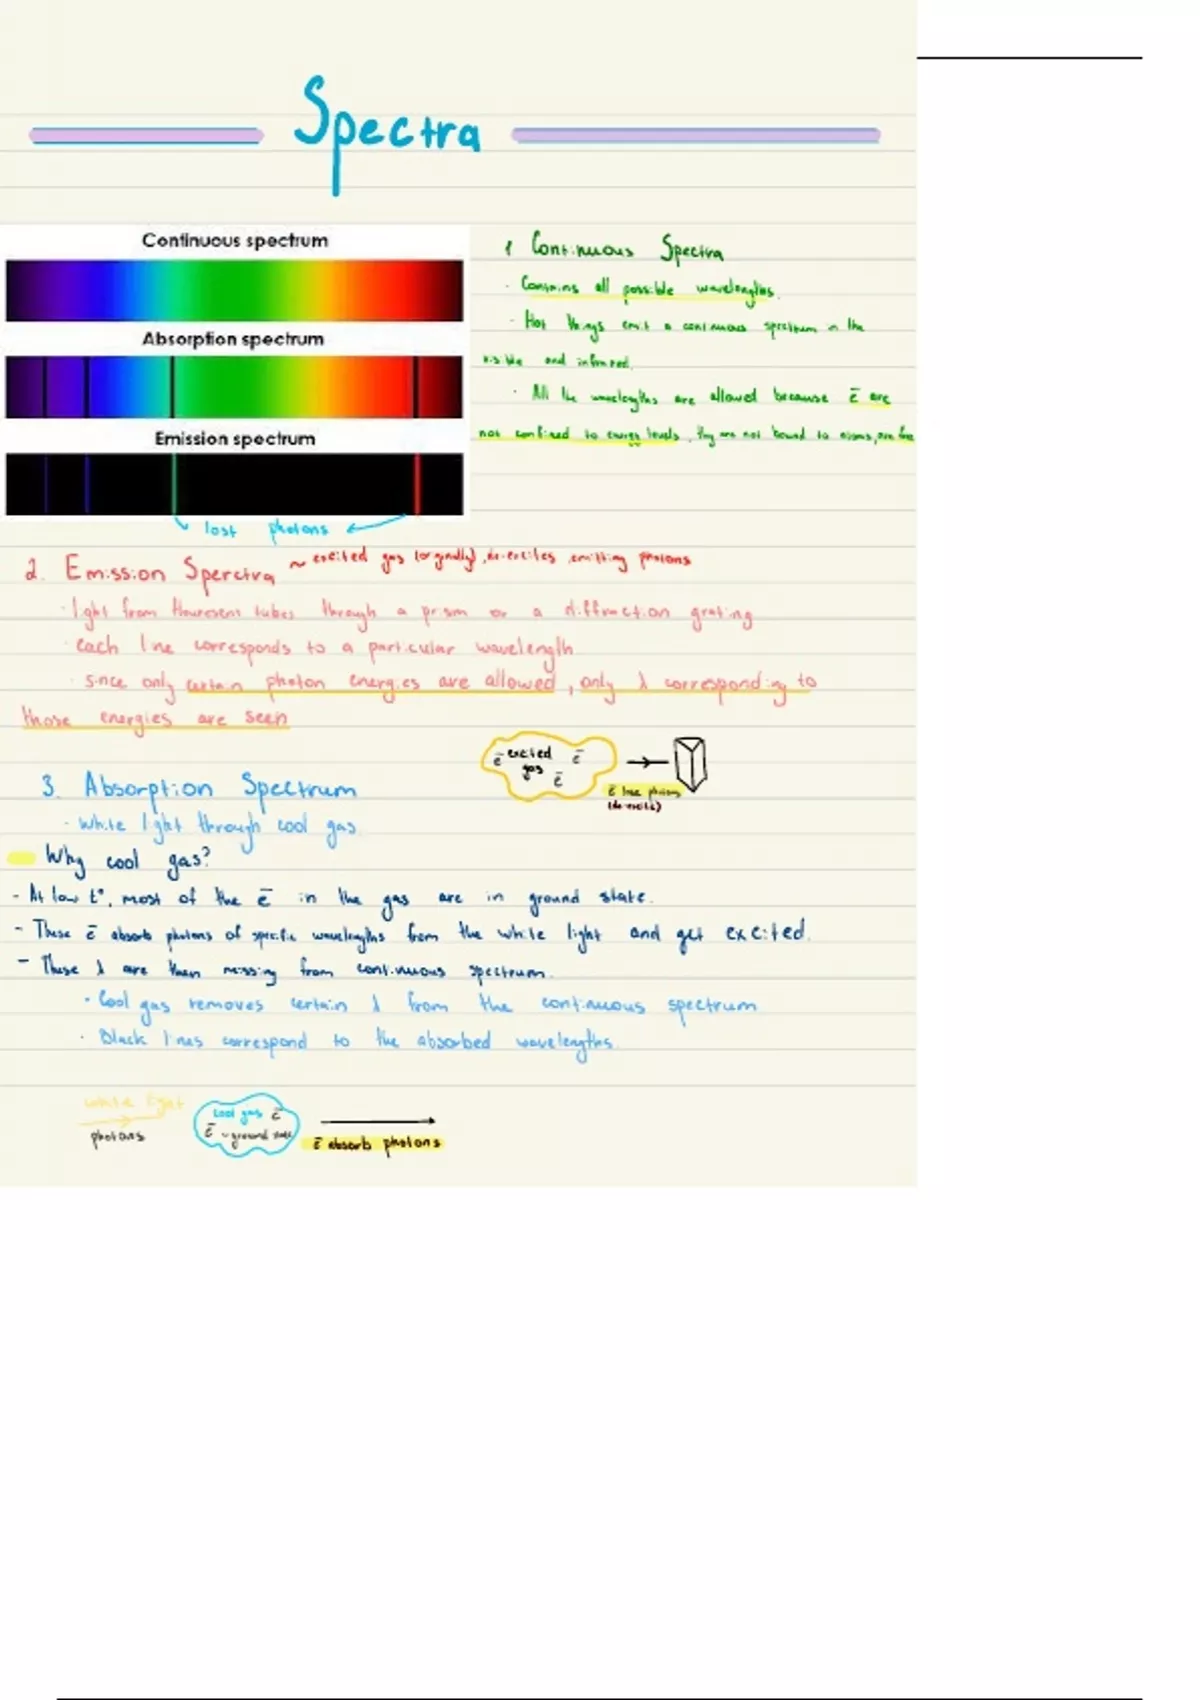 Spectra
Continuous spectrum
Absorption spectrum
Emission spectrum
lost photons
1 Continuous Spectra
· Contains all possible wavelengths.
· Hot things emit a continuous spectrum in the
visible and infrared.
· All the wavelengths are allowed because e̅ are
not confined to energy levels, they are not bound to atoms, are free
2. Emission Sperctra ~ excited gas (orginally), de-excites, emitting photons
· light from flouresent tubes through a prism or a diffraction grating
· each line corresponds to a particular wavelength
· since only certain photon energies are allowed, only λ corresponding to
those energies are seen
e̅ excited e̅
gas e̅
e̅ lose photons
(de-excite)
3. Absorption Spectrum
· White light through cool gas.
Why cool gas?
- At low t°, most of the e̅ in the gas are in ground state.
- These e̅ absorb photons of specific wavelengths from the white light and get excited.
- These λ are then missing from continuous spectrum.
· Cool gas removes certain λ from the continuous spectrum
· Black lines correspond to the absorbed wavelengths.
white light
photons
cool gas e̅
e̅ ~ ground state
e̅ absorb photons